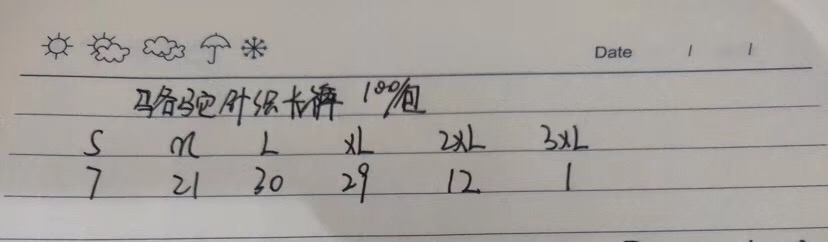 Date / /
骆驼针织长裤 100/包
S M L XL 2XL 3XL
7 21 30 29 12 1